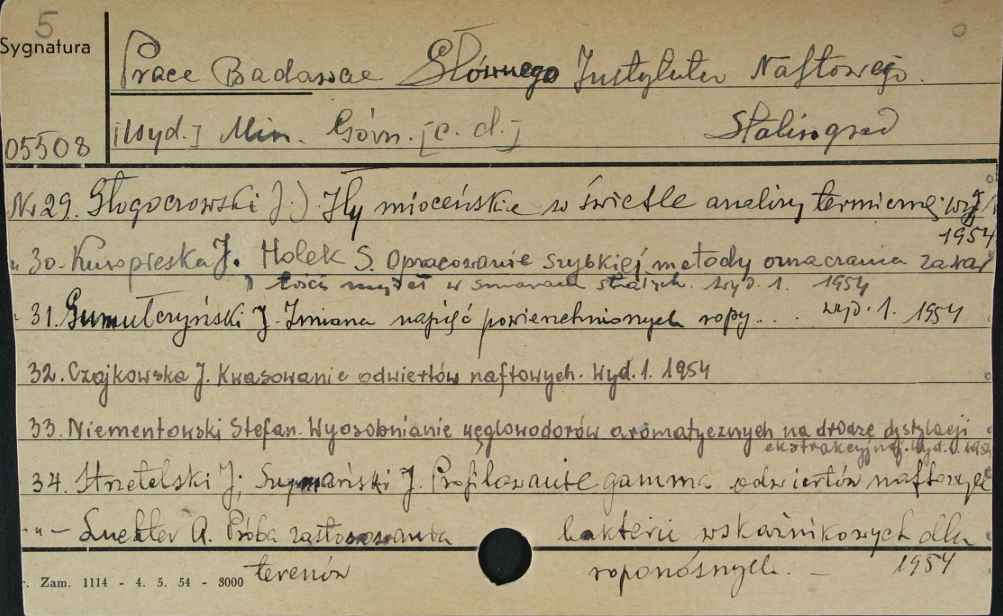 5
Sygnatura
Prace Badawcze Głównego Instytutu Naftowego.
05508
[Wyd.] Min. Górn. [c. d.] Stalinogród
Nr 29. Głogoczowski J.) Iły mioceńskie w świetle analizy termicznej. wyd. 1
1954
" 30. Kuropieska J. Holek S. Opracowanie szybkiej metody oznaczania zawar
tości mydeł w smarach stałych. wyd. 1. 1954
" 31. Gumułczyński J. Zmiana napięć powierzchniowych ropy... wyd. 1. 1954
32. Czajkowska J. Kwasowanie odwiertów naftowych. Wyd. 1. 1954
33. Niementowski Stefan. Wyosobnianie węglowodorów aromatycznych na drodze dystylacji
ekstrakcyjnej. Wyd. 1. 1954
34. Strzetelski J; Szymański J. Profilowanie gamma odwiertów naftowych
- " - Luchter A. Próba zastosowania bakterii wskaźnikowych dla
terenów roponośnych. — 1954
r. Zam. 1114 - 4. 5. 54 - 3000